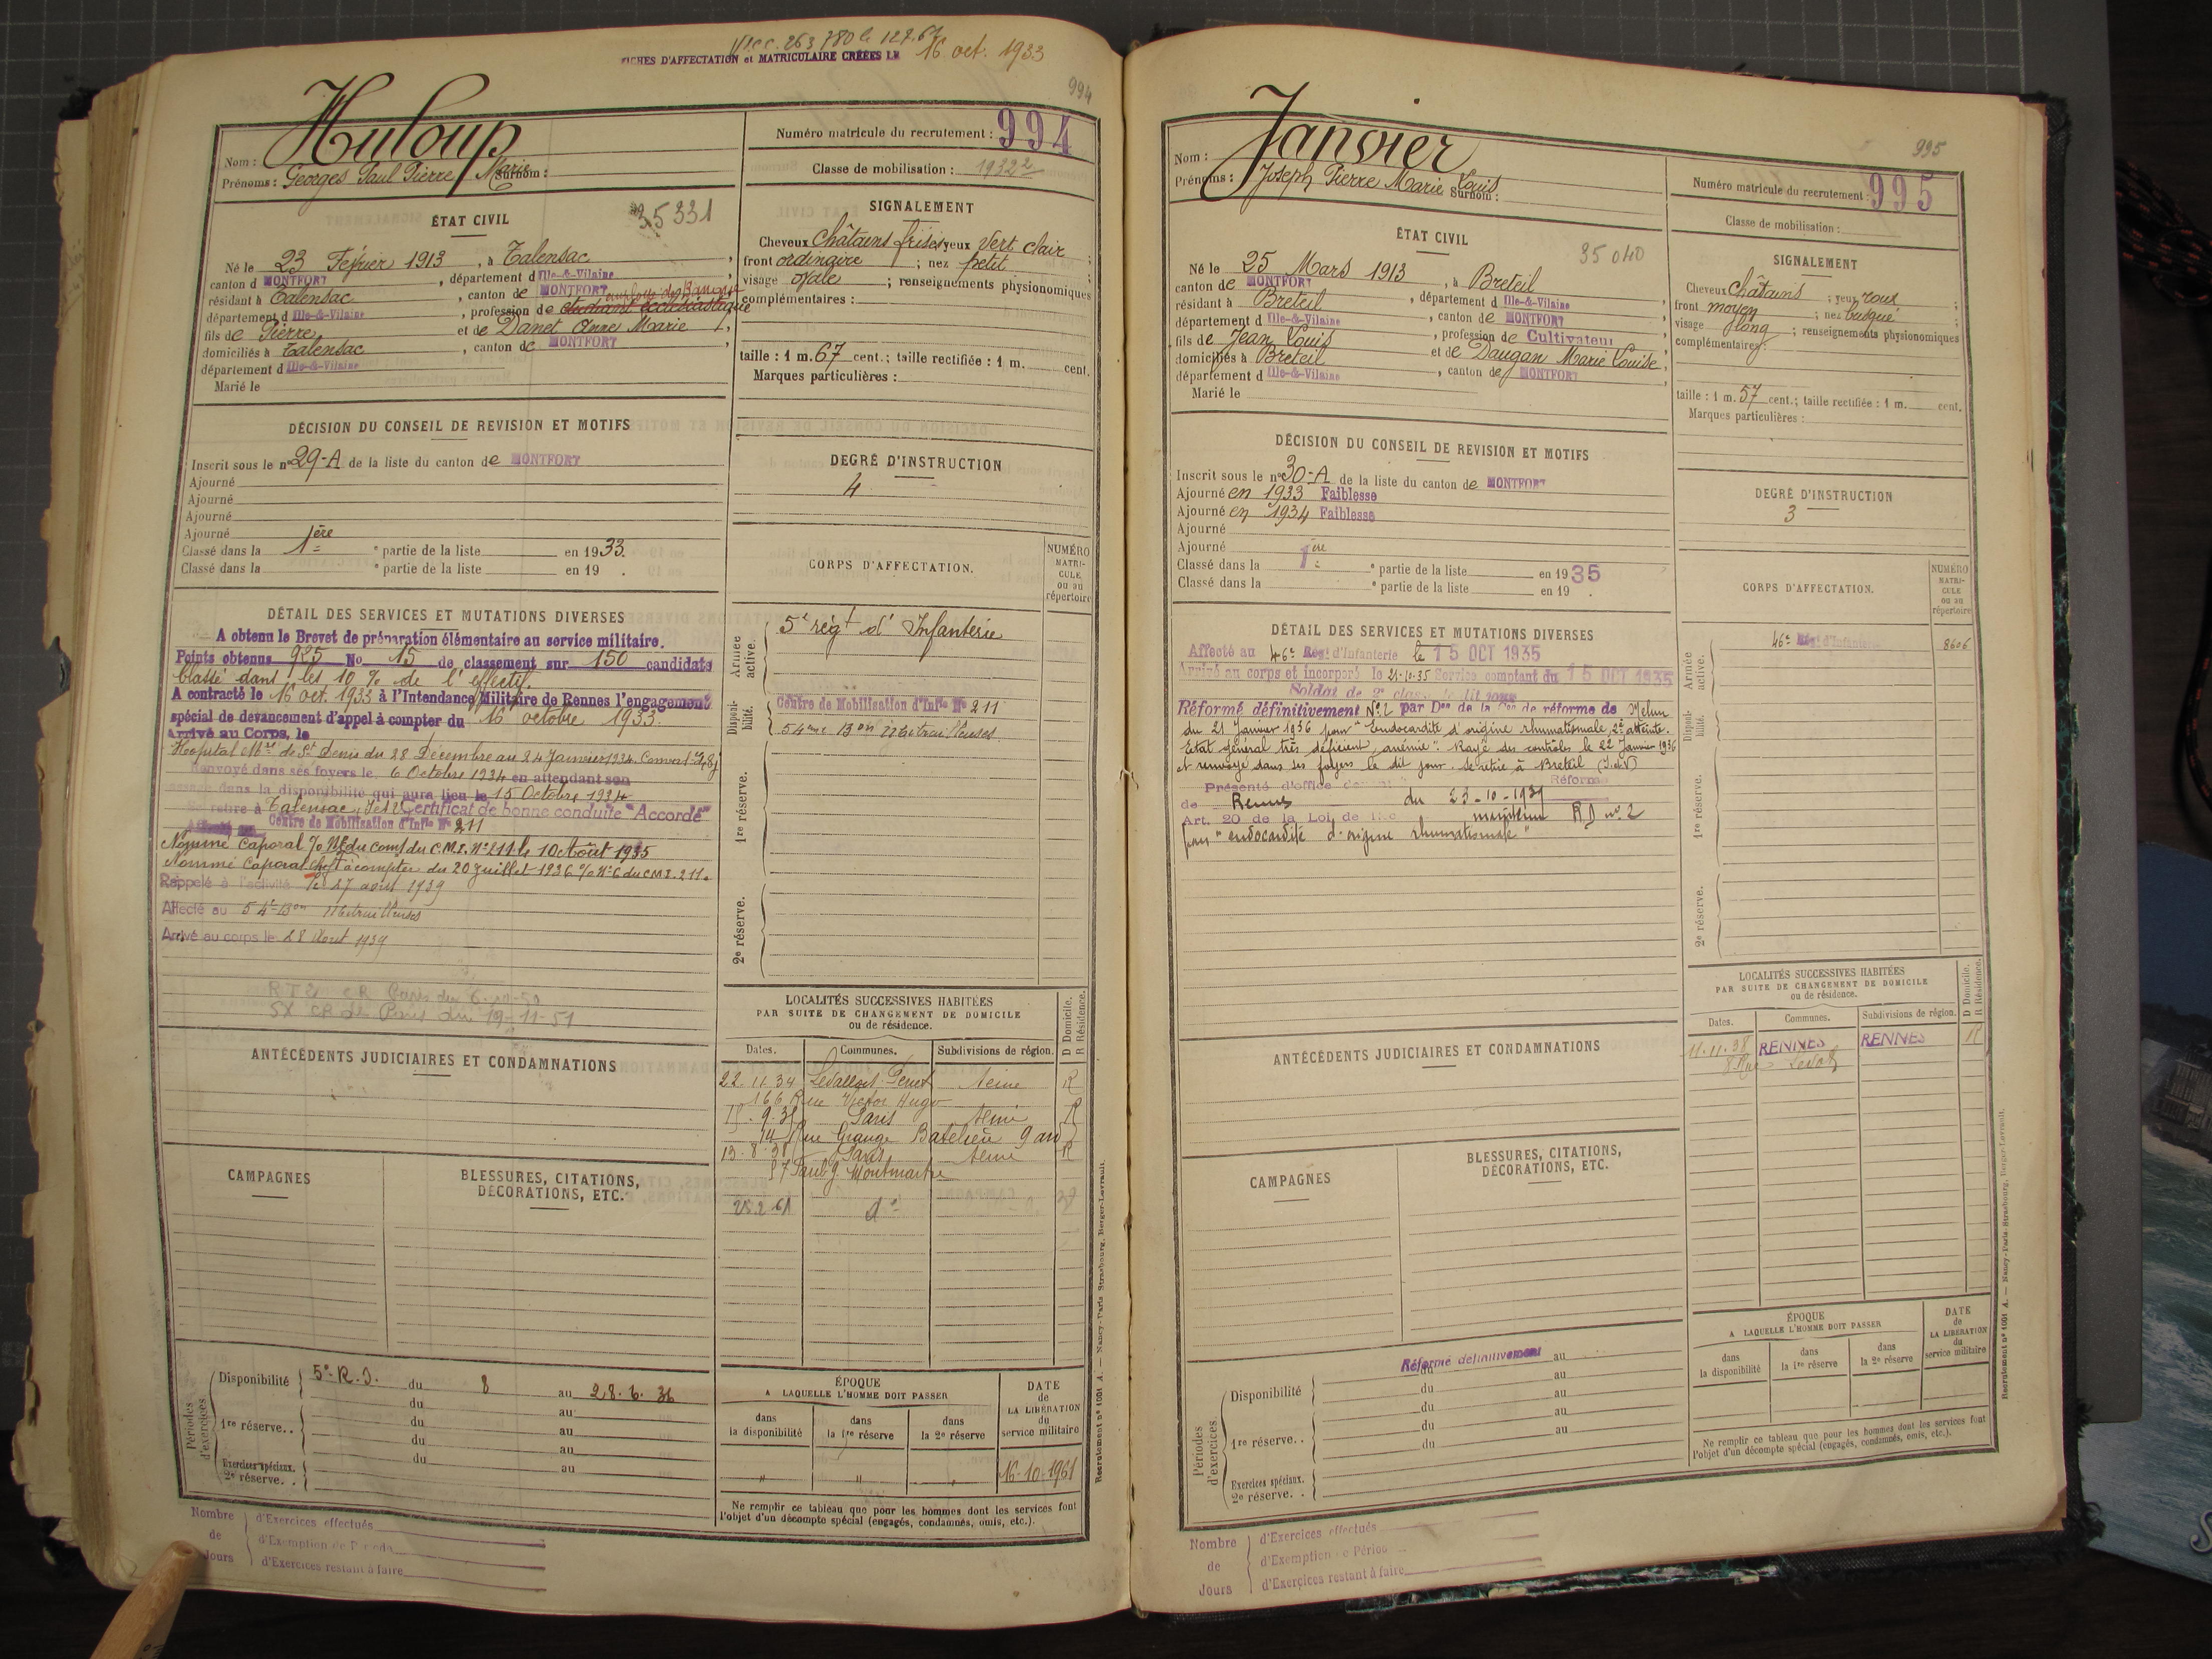 16 oct. 1933
FICHES D'AFFECTATION et MATRICULAIRE CRÉÉES LE
994
Nom : Huloup
Prénoms : Georges Paul Pierre Marie Surnom :
Numéro matricule du recrutement : 994
Classe de mobilisation : 1932 2
ÉTAT CIVIL
35331
Né le 23 Février 1913, à Talensac,
canton d MONTFORT, département d Ille-&-Vilaine,
résidant à Talensac, canton de MONTFORT
département d Ille-&-Vilaine, profession de étudiant ecclésiastique employé de Banque
fils de Pierre et de Danet Anne Marie,
domiciliés à Talensac, canton de MONTFORT,
département d Ille-&-Vilaine
Marié le
SIGNALEMENT
Cheveux Châtains frisés yeux Vert clair ;
front ordinaire ; nez petit ;
visage ovale ; renseignements physionomiques
complémentaires :
taille : 1 m. 67 cent.; taille rectifiée : 1 m. cent.
Marques particulières :
DÉCISION DU CONSEIL DE REVISION ET MOTIFS
Inscrit sous le n° 29-A de la liste du canton de MONTFORT
Ajourné
Ajourné
Ajourné
Ajourné
Classé dans la 1ère e partie de la liste en 1933.
Classé dans la e partie de la liste en 19 .
DEGRÉ D'INSTRUCTION
4
CORPS D'AFFECTATION.
NUMÉRO MATRICULE ou au répertoire
Armée active.
5e régt d'Infanterie
Disponibilité.
Centre de Mobilisation d'Infie N° 211
54ème Bon Mitrailleuses
1re réserve.
2e réserve.
DÉTAIL DES SERVICES ET MUTATIONS DIVERSES
A obtenu le Brevet de préparation élémentaire au service militaire.
Points obtenus 925 No 15 de classement sur 150 candidats
Classé dans les 10 % de l'effectif.
A contracté le 16 oct. 1933 à l'Intendance Militaire de Rennes l'engagement
spécial de devancement d'appel à compter du 16 octobre 1933.
Arrivé au Corps, le
Hopital Mre de St Denis du 28 Décembre au 24 Janvier 1934
Renvoyé dans ses foyers le 6 Octobre 1934 en attendant son
passage dans la disponibilité qui aura lieu le 15 Octobre 1934
Se retire à Talensac, I et V Certificat de bonne conduite "Accordé"
Affecté au Centre de Mobilisation d'Infie N° 211
Nommé Caporal du C.M.I. N° 211 le 10 Août 1935
Nommé Caporal Chef à compter du 20 Juillet 1936 % N° 6 du C.M.I. 211.
Rappelé à l'activité le 27 août 1939
Affecté au 54e Bon Mitrailleuses
Arrivé au corps le 28 Aout 1939
SX CR de Paris du 19-11-51
ANTÉCÉDENTS JUDICIAIRES ET CONDAMNATIONS
LOCALITÉS SUCCESSIVES HABITÉES
PAR SUITE DE CHANGEMENT DE DOMICILE
ou de résidence.
D Domicile.
R Résidence.
Dates. Communes. Subdivisions de région.
22.11.34 Levallois-Perret Seine R
166 Rue Victor Hugo
Paris Seine R
14 Rue Grange Batelière 9 arr
Paris Seine R
Faubg Montmartre
25.2.61 do
CAMPAGNES
BLESSURES, CITATIONS,
DÉCORATIONS, ETC.
Périodes d'exercices
Disponibilité 5e R.I. du 8 au 28.6.36
du au
1re réserve. . du au
du au
Exercices spéciaux. du au
2e réserve. . au
ÉPOQUE
A LAQUELLE L'HOMME DOIT PASSER
DATE de LA LIBÉRATION du service militaire
dans la disponibilité
dans la 1re réserve
dans la 2e réserve
" " " 16-10-1961
Ne remplir ce tableau que pour les hommes dont les services font
l'objet d'un décompte spécial (engagés, condamnés, omis, etc.).
Recrutement n° 1001 A. — Nancy-Paris-Strasbourg, Berger-Levrault.
Nombre de Jours
d'Exercices effectués
d'Exemption de Période
d'Exercices restant à faire
995
Nom : Janvier
Prénoms : Joseph Pierre Marie Louis Surnom :
Numéro matricule du recrutement : 995
Classe de mobilisation :
ÉTAT CIVIL
35040
Né le 25 Mars 1913, à Breteil
canton de MONTFORT, département d Ille-&-Vilaine,
résidant à Breteil, canton de MONTFORT,
département d Ille-&-Vilaine, profession de Cultivateur
fils de Jean Louis et de Daugan Marie Louise,
domiciliés à Breteil, canton de MONTFORT,
département d Ille-&-Vilaine
Marié le
SIGNALEMENT
Cheveux châtains ; yeux roux ;
front moyen ; nez busqué ;
visage long ; renseignements physionomiques
complémentaires :
taille : 1 m. 57 cent.; taille rectifiée : 1 m. cent.
Marques particulières :
DÉCISION DU CONSEIL DE REVISION ET MOTIFS
Inscrit sous le n° 30-A de la liste du canton de MONTFORT
Ajourné en 1933 Faiblesse
Ajourné en 1934 Faiblesse
Ajourné
Ajourné
Classé dans la 1ère e partie de la liste en 1935
Classé dans la e partie de la liste en 19 .
DEGRÉ D'INSTRUCTION
3
CORPS D'AFFECTATION.
NUMÉRO MATRICULE ou au répertoire
Armée active.
46e Régt d'Infanterie 8606
Disponibilité.
1re réserve.
2e réserve.
DÉTAIL DES SERVICES ET MUTATIONS DIVERSES
Affecté au 46e Régt d'Infanterie le 15 OCT 1935
Arrivé au corps et incorporé le 21-10-35 Service comptant du 15 OCT 1935
Soldat de 2e classe le dit jour
Réformé définitivement N° 2 par Don de la Con de réforme de Melun
du 21 Janvier 1936 pour "Endocardite d'origine rhumatismale, 2e atteinte.
Etat général très déficient, anémie". Rayé des contrôles le 22 Janvier 1936
et renvoyé dans ses foyers le dit jour. Se retire à Breteil (I. et V)
Présenté d'office devant Réforme
de Rennes du 23-10-1939
Art. 20 de la Loi de maintenu RD n° 2
pour "endocardite d'origine rhumatismale"
ANTÉCÉDENTS JUDICIAIRES ET CONDAMNATIONS
LOCALITÉS SUCCESSIVES HABITÉES
PAR SUITE DE CHANGEMENT DE DOMICILE
ou de résidence.
D Domicile.
R Résidence.
Dates. Communes. Subdivisions de région.
11.11.38 RENNES RENNES R
8 Rue
CAMPAGNES
BLESSURES, CITATIONS,
DÉCORATIONS, ETC.
Réformé définitivement
Périodes d'exercices.
Disponibilité du au
du au
1re réserve. . du au
du au
du au
Exercices spéciaux.
2e réserve. .
ÉPOQUE
A LAQUELLE L'HOMME DOIT PASSER
DATE de LA LIBÉRATION du service militaire
dans la disponibilité
dans la 1re réserve
dans la 2e réserve
Ne remplir ce tableau que pour les hommes dont les services font
l'objet d'un décompte spécial (engagés, condamnés, omis, etc.).
Recrutement n° 1001 A. — Nancy-Paris-Strasbourg, Berger-Levrault.
Nombre de Jours
d'Exercices effectués
d'Exemption de Période
d'Exercices restant à faire